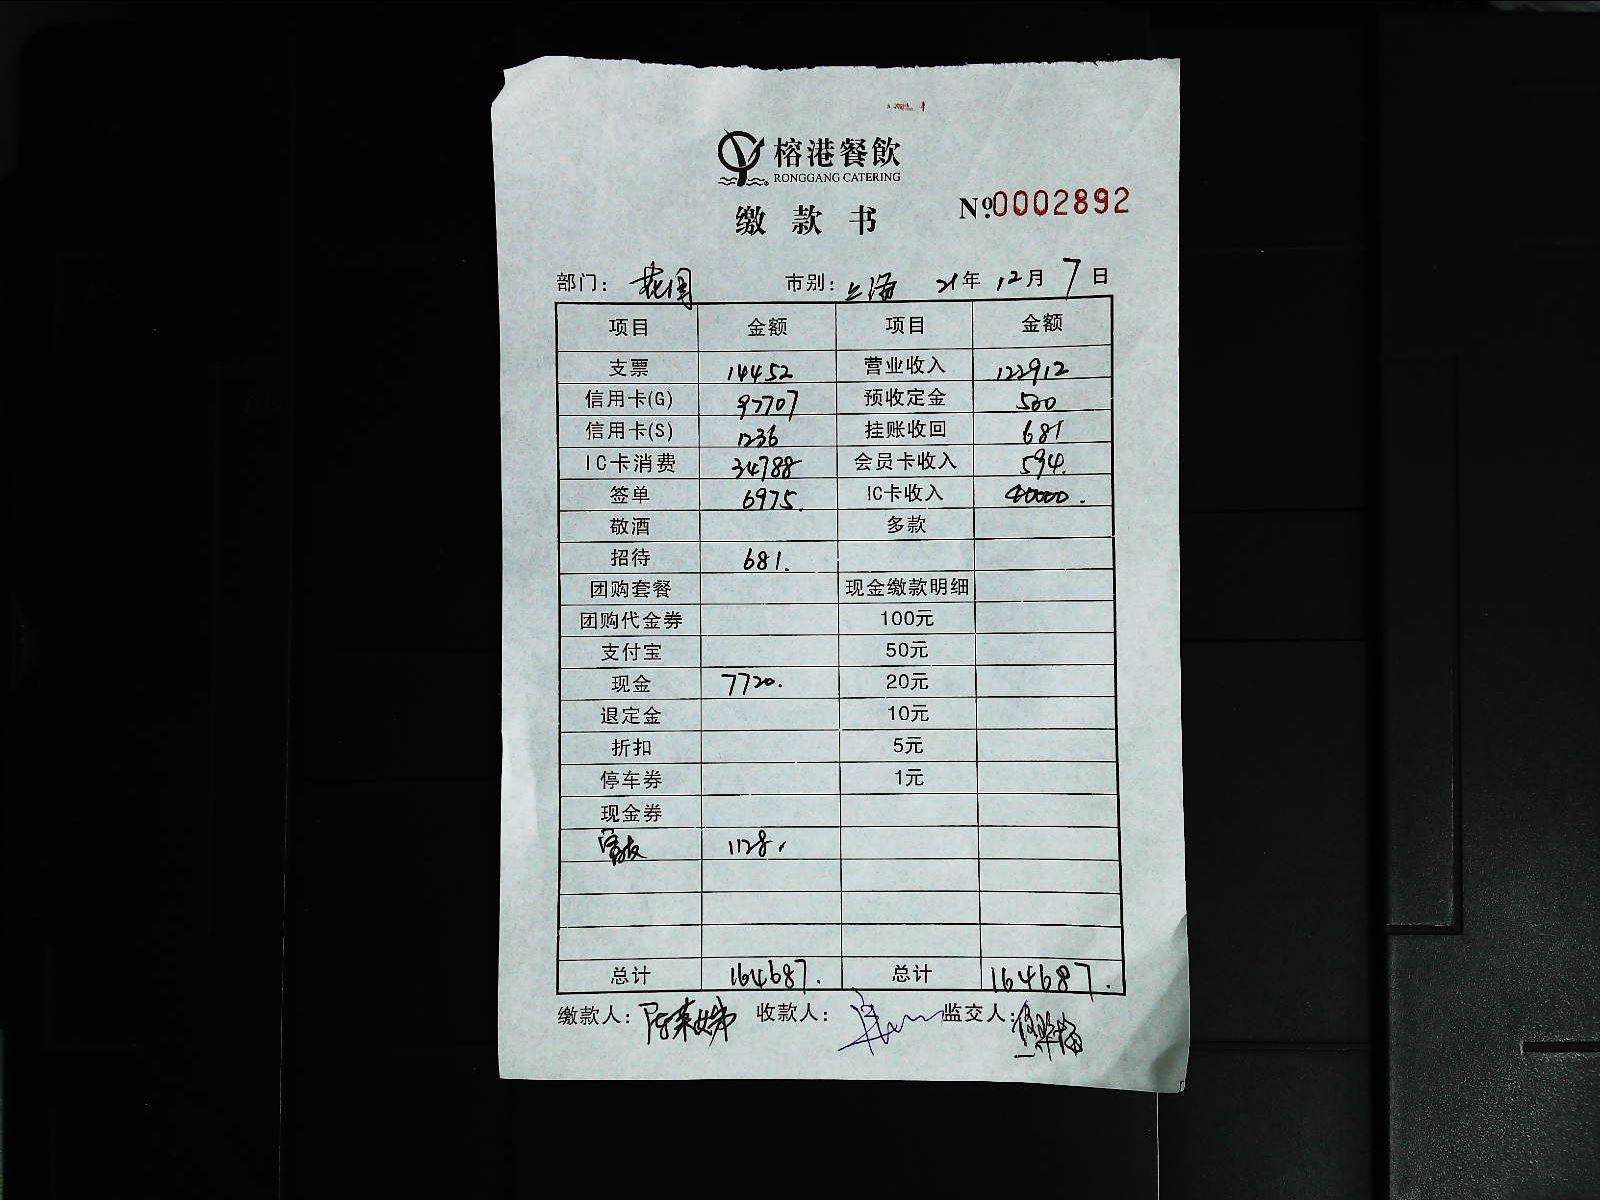 榕港餐飲
RONGGANG CATERING
缴款书 Nº.0002892
部门: 花园 市别: 上海 21年 12月 7日
项目 金额 项目 金额
支票 14452 营业收入 122912
信用卡(G) 97707 预收定金 500
信用卡(S) 1236 挂账收回 681
IC卡消费 34788 会员卡收入 594.
签单 6975. IC卡收入 40000.
敬酒 多款
招待 681.
团购套餐 现金缴款明细
团购代金券 100元
支付宝 50元
现金 7720. 20元
退定金 10元
折扣 5元
停车券 1元
现金券
1128.
总计 164687. 总计 164687.
缴款人: 收款人: 监交人: